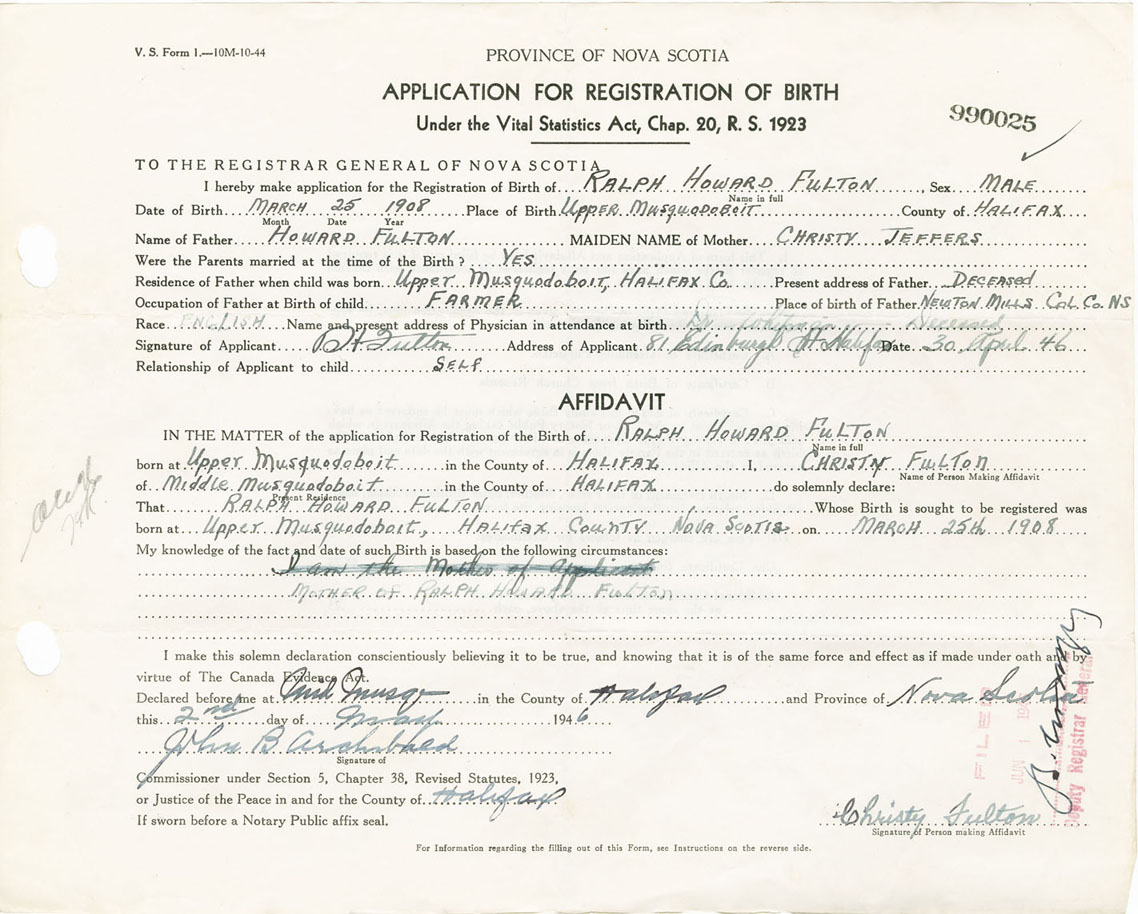 V. S. Form 1.—10M-10-44
PROVINCE OF NOVA SCOTIA
APPLICATION FOR REGISTRATION OF BIRTH
Under the Vital Statistics Act, Chap. 20, R. S. 1923
990025
TO THE REGISTRAR GENERAL OF NOVA SCOTIA
I hereby make application for the Registration of Birth of RALPH HOWARD FULTON, Sex MALE
Name in full
Date of Birth MARCH 25 1908 Place of Birth Upper Musquodoboit County of HALIFAX
Month Date Year
Name of Father HOWARD FULTON MAIDEN NAME of Mother CHRISTY JEFFERS
Were the Parents married at the time of the Birth? YES
Residence of Father when child was born Upper Musquodoboit, HALIFAX Co. Present address of Father DECEASED
Occupation of Father at Birth of child FARMER Place of birth of Father NEWTON MILLS COL. CO. NS
Race ENGLISH Name and present address of Physician in attendance at birth Dr. Deceased
Signature of Applicant R H Fulton Address of Applicant 81 Edinburgh St Halifax Date 30 April 46
Relationship of Applicant to child SELF
AFFIDAVIT
IN THE MATTER of the application for Registration of the Birth of RALPH HOWARD FULTON
Name in full
born at Upper Musquodoboit in the County of HALIFAX I, CHRISTY FULTON
Name of Person Making Affidavit
of Middle Musquodoboit in the County of HALIFAX do solemnly declare:
Present Residence
That RALPH HOWARD FULTON Whose Birth is sought to be registered was
born at Upper Musquodoboit, HALIFAX COUNTY NOVA SCOTIA on MARCH 25th 1908
My knowledge of the fact and date of such Birth is based on the following circumstances:
I am the Mother of Applicant
MOTHER OF RALPH HOWARD FULTON
I make this solemn declaration conscientiously believing it to be true, and knowing that it is of the same force and effect as if made under oath and by
virtue of The Canada Evidence Act.
Declared before me at Mid Musqo in the County of Halifax and Province of Nova Scotia
this 2nd day of May 1946
John B Archibald
Signature of
Commissioner under Section 5, Chapter 38, Revised Statutes, 1923,
or Justice of the Peace in and for the County of Halifax
If sworn before a Notary Public affix seal.
FILED
JUN 1
Deputy Registrar General
Christy Fulton
Signature of Person making Affidavit
For Information regarding the filling out of this Form, see Instructions on the reverse side.